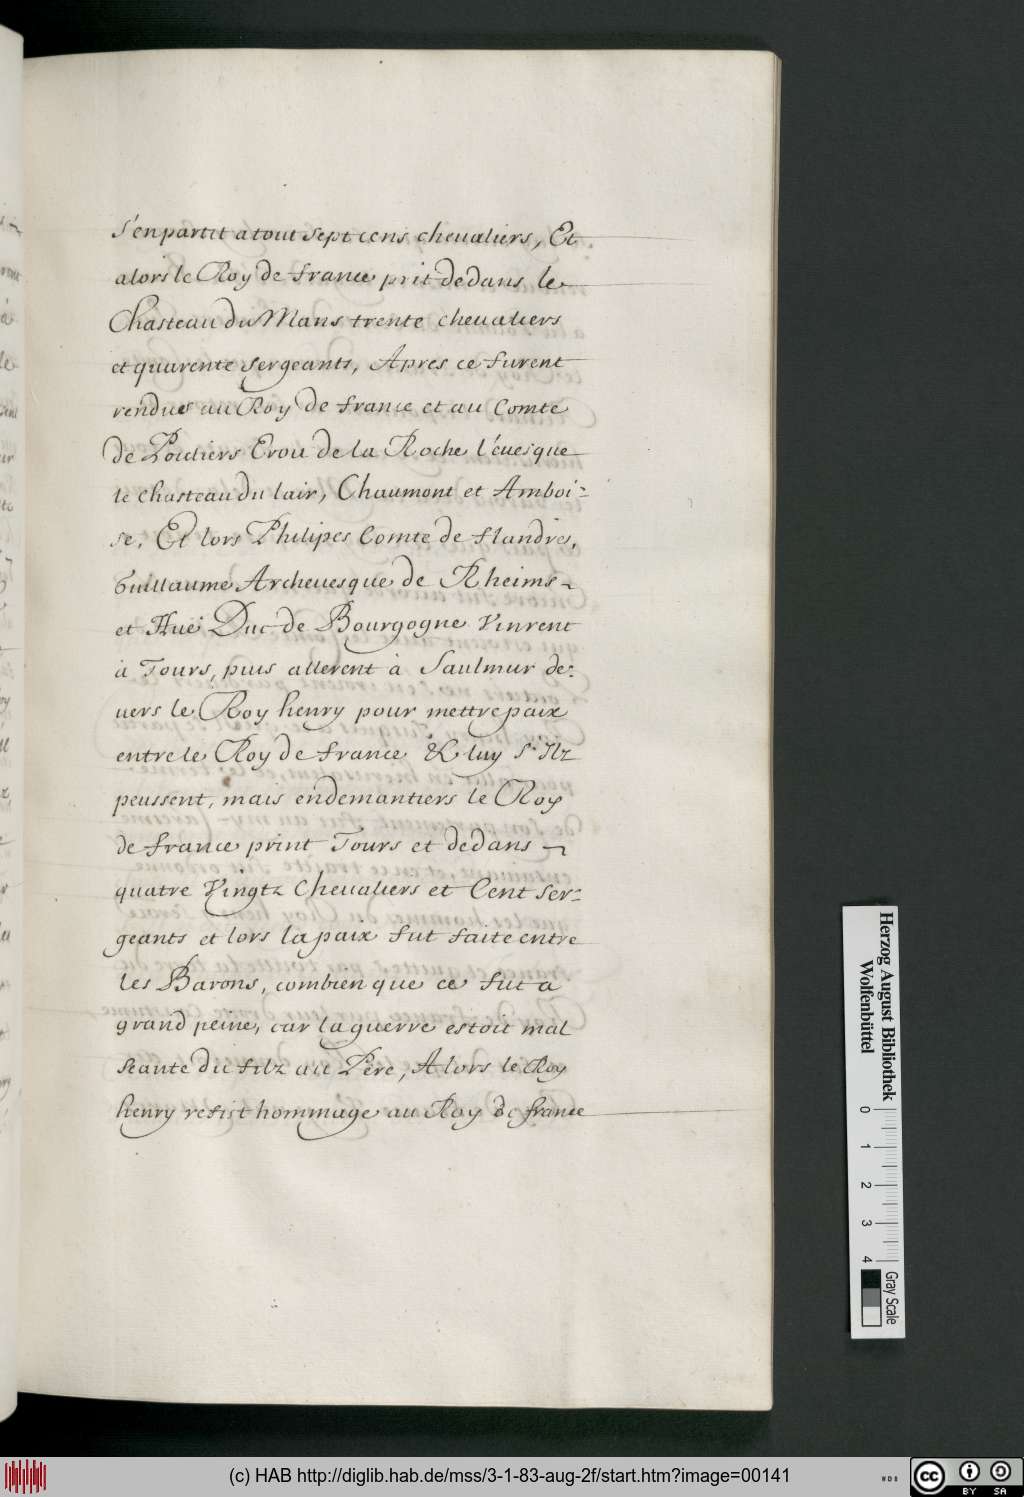 s'en partit a tout sept cens chevaliers, Et
alors le Roy de france prit dedans le
Chasteau du Mans trente chevaliers
et quarente sergeants, Apres ce furent
rendues au Roy de france et au Comte
de Poictiers Trou de la Roche l'évesque
le chasteau du lair, Chaumont et Amboi-
se, Et lors Philipes Comte de flandres,
Guillaume Archevesque de Rheims
et Hue Duc de Bourgogne Vinrent
à Tours, puis allerent à Saulmur de-
vers le Roy henry pour mettre paix
entre le Roy de france & luy s'Ilz
peussent, mais endemantiers le Roy
de france print Tours et dedans
quatre Vingtz Chevaliers et Cent ser-
geants et lors la paix fut faite entre
les Barons, combien que ce fut a
grand peine, car la guerre estoit mal
seante du filz au Pere, Alors le Roy
henry refist hommage au Roy de france
Herzog August Bibliothek
Wolfenbüttel
0 1 2 3 4
Gray Scale
(c) HAB http://diglib.hab.de/mss/3-1-83-aug-2f/start.htm?image=00141
WDB
cc BY SA